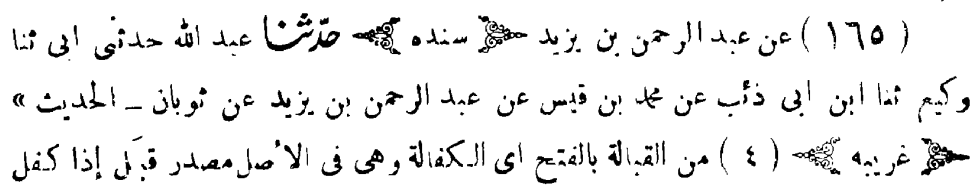 ( ١٦٥ ) عن عبد الرحمن بن يزيد ﴿ سنده ﴾ حدّثنا عبد الله حدثنى ابى ثنا
وكيع ثنا ابن ابى ذئب عن محمد بن قيس عن عبد الرحمن بن يزيد عن ثوبان ـ الحديث »
﴿ غريبه ﴾ ( ٤ ) من القبالة بالفتح اى الكفالة وهى فى الأصل مصدر قبَل إذا كفل